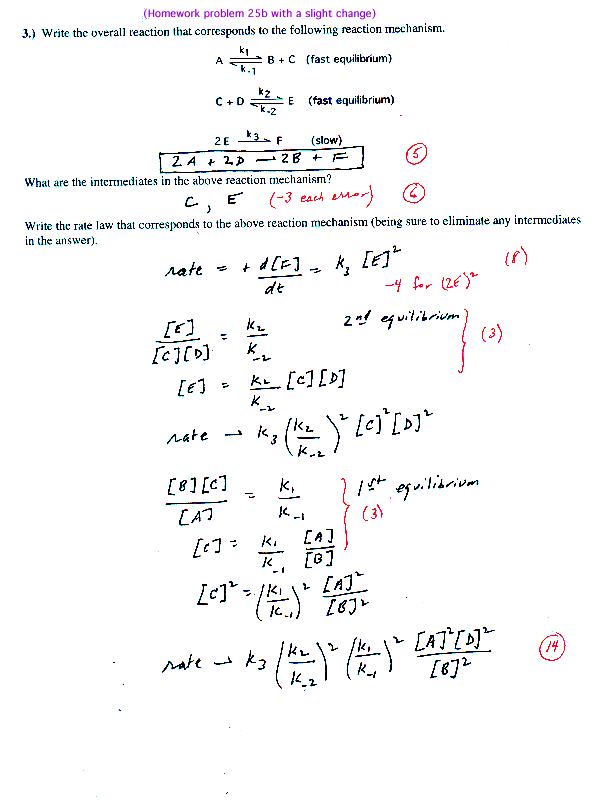 (Homework problem 25b with a slight change)
3.) Write the overall reaction that corresponds to the following reaction mechanism.
k1
A ⇌ B + C (fast equilibrium)
k-1
k2
C + D ⇌ E (fast equilibrium)
k-2
2E k3→ F (slow)
2A + 2D → 2B + F (5)
What are the intermediates in the above reaction mechanism?
C, E (-3 each error) (6)
Write the rate law that corresponds to the above reaction mechanism (being sure to eliminate any intermediates
in the answer).
rate = + d[F]/dt = k3 [E]² (8)
-4 for (2E)²
[E]/[C][D] = k2/k-2 2nd equilibrium (3)
[E] = k2/k-2 [C][D]
rate → k3 (k2/k-2)² [C]²[D]²
[B][C]/[A] = k1/k-1 1st equilibrium (3)
[C] = k1/k-1 [A]/[B]
[C]² = (k1/k-1)² [A]²/[B]²
rate → k3 (k2/k-2)² (k1/k-1)² [A]²[D]²/[B]² (14)